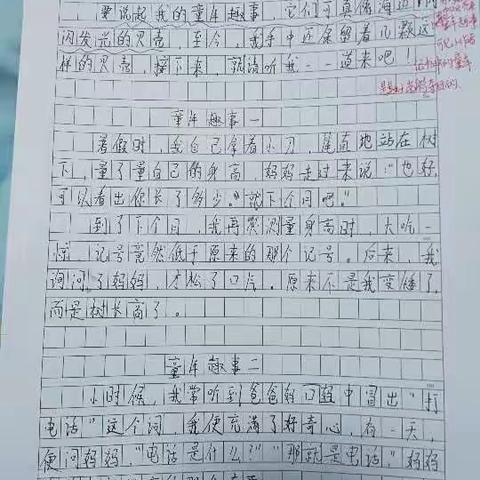 要说起我的童年趣事，它们可真像海边闪
闪发光的贝壳，至今，我手中还保留着几颗这
样的贝壳，接下来，就请听我一一道来吧！
童年趣事一
暑假时，我自己拿着小刀，笔直地站在树
下，量了量自己的身高，妈妈走过来说："也好，
可以看出你长了多少。""就下个月吧。"
到了下个月，我再要测量身高时，大吃一
惊，记号竟然低于原来的那个记号。后来，我
询问了妈妈，才松了口气。原来不是我变矮了，
而是树长高了。
童年趣事二
小时候，我常听到爸爸妈口中冒出"打
电话"这个词，我便充满了好奇心，有一天，
便问妈妈，"电话是什么？""那就是电话。"妈妈